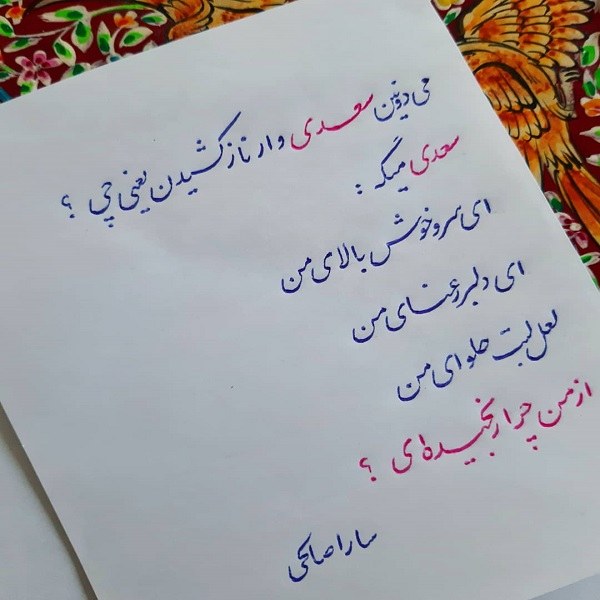 می دونین سعدی وار ناز کشیدن یعنی چی ؟
سعدی میگه :
ای سرو خوش بالای من
ای دلبر رعنای من
لعل لبت حلوای من
از من چرا رنجیده‌ای ؟
سارا صالحی